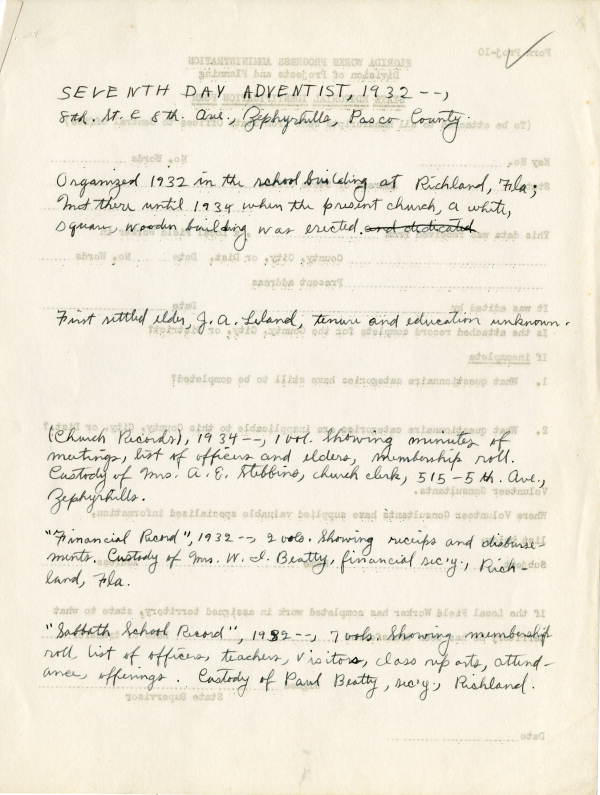 SEVENTH DAY ADVENTIST, 1932 --,
8th. St. & 8th. Ave., Zephyrhills, Pasco County.
Organized 1932 in the school building at Richland, Fla;
met there until 1934 when the present church, a white,
square, wooden building was erected. and dedicated
First settled elder, J. A. Leland, tenure and education unknown.
(Church Records), 1934 --, 1 vol. Showing minutes of
meetings, list of officers and elders, membership roll.
Custody of Mrs. A. E. Stebbins, church clerk, 515 - 5th. Ave.,
Zephyrhills.
"Financial Record", 1932 --, 2 vols. Showing receips and disburse-
ments. Custody of Mrs. W. I. Beatty, financial sec'y., Rich-
land, Fla.
"Sabbath School Record", 1932 --, 7 vols. Showing membership
roll list of officers, teachers, visitors, class reports, attend-
ance, offerings. Custody of Paul Beatty, sec'y., Richland.